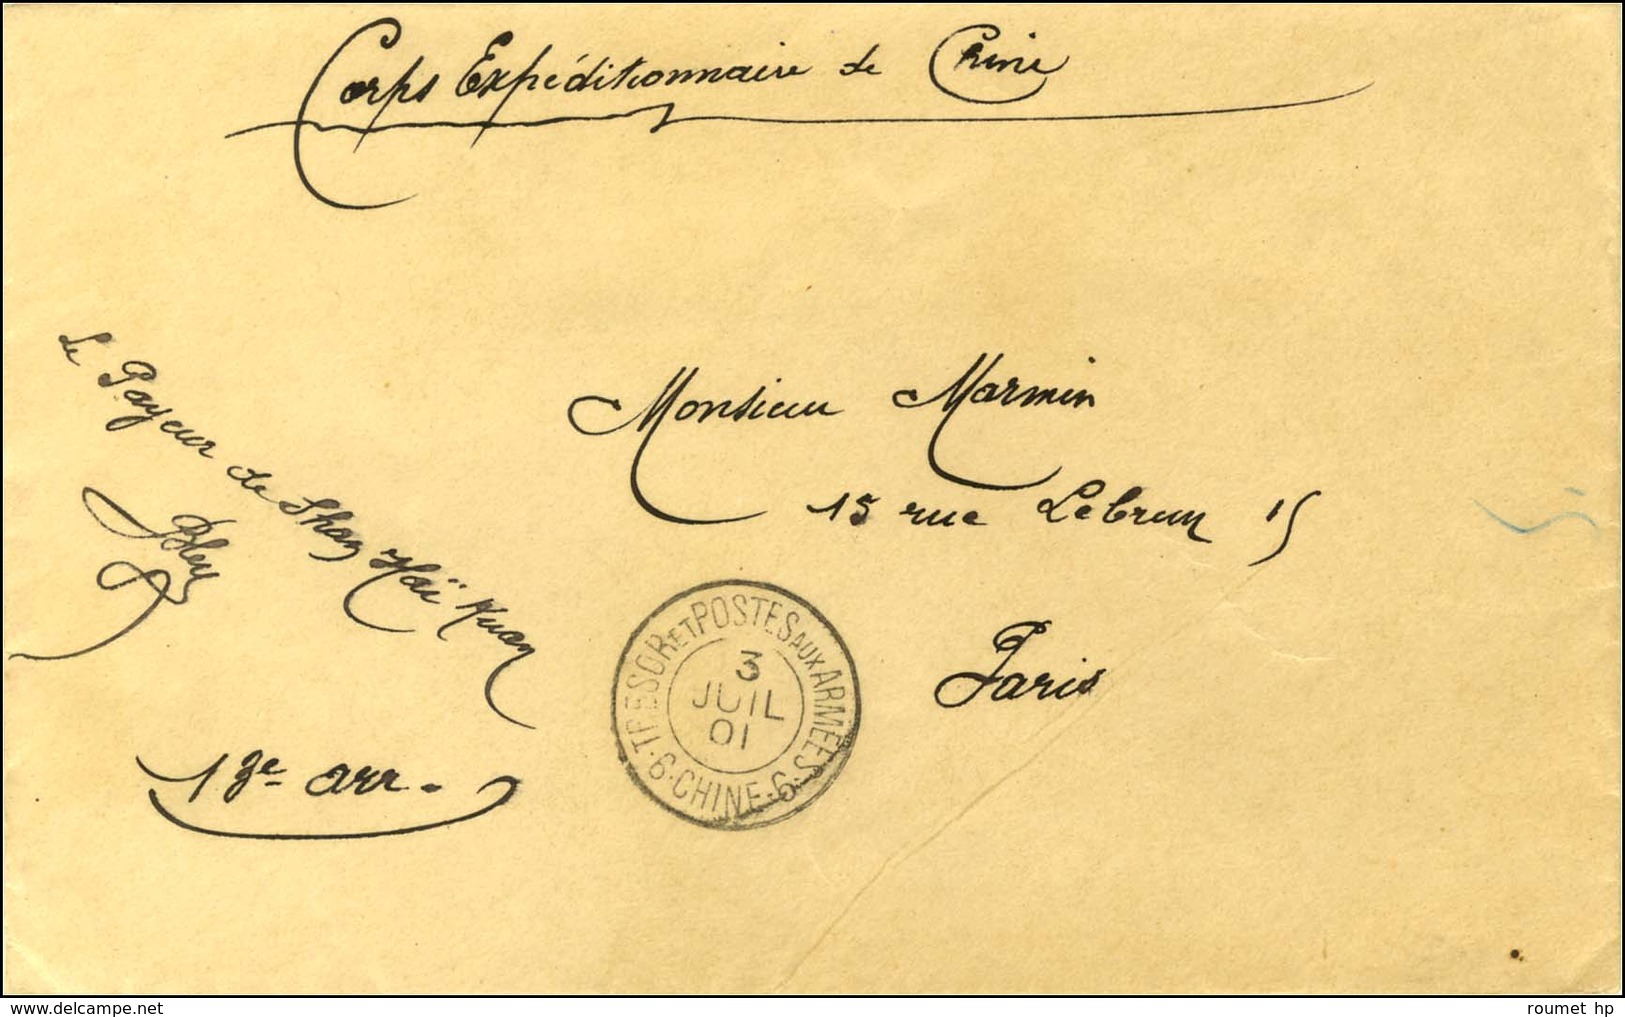 Corps Expéditionnaire de Chine
Le Payeur de Shan Haï Kuan
Monsieur Marmin
15 rue Lebrun 15
Paris
13e arr.
TRESOR ET POSTES AUX ARMÉES
3
JUIL
01
6 · CHINE · 6
roumet hp